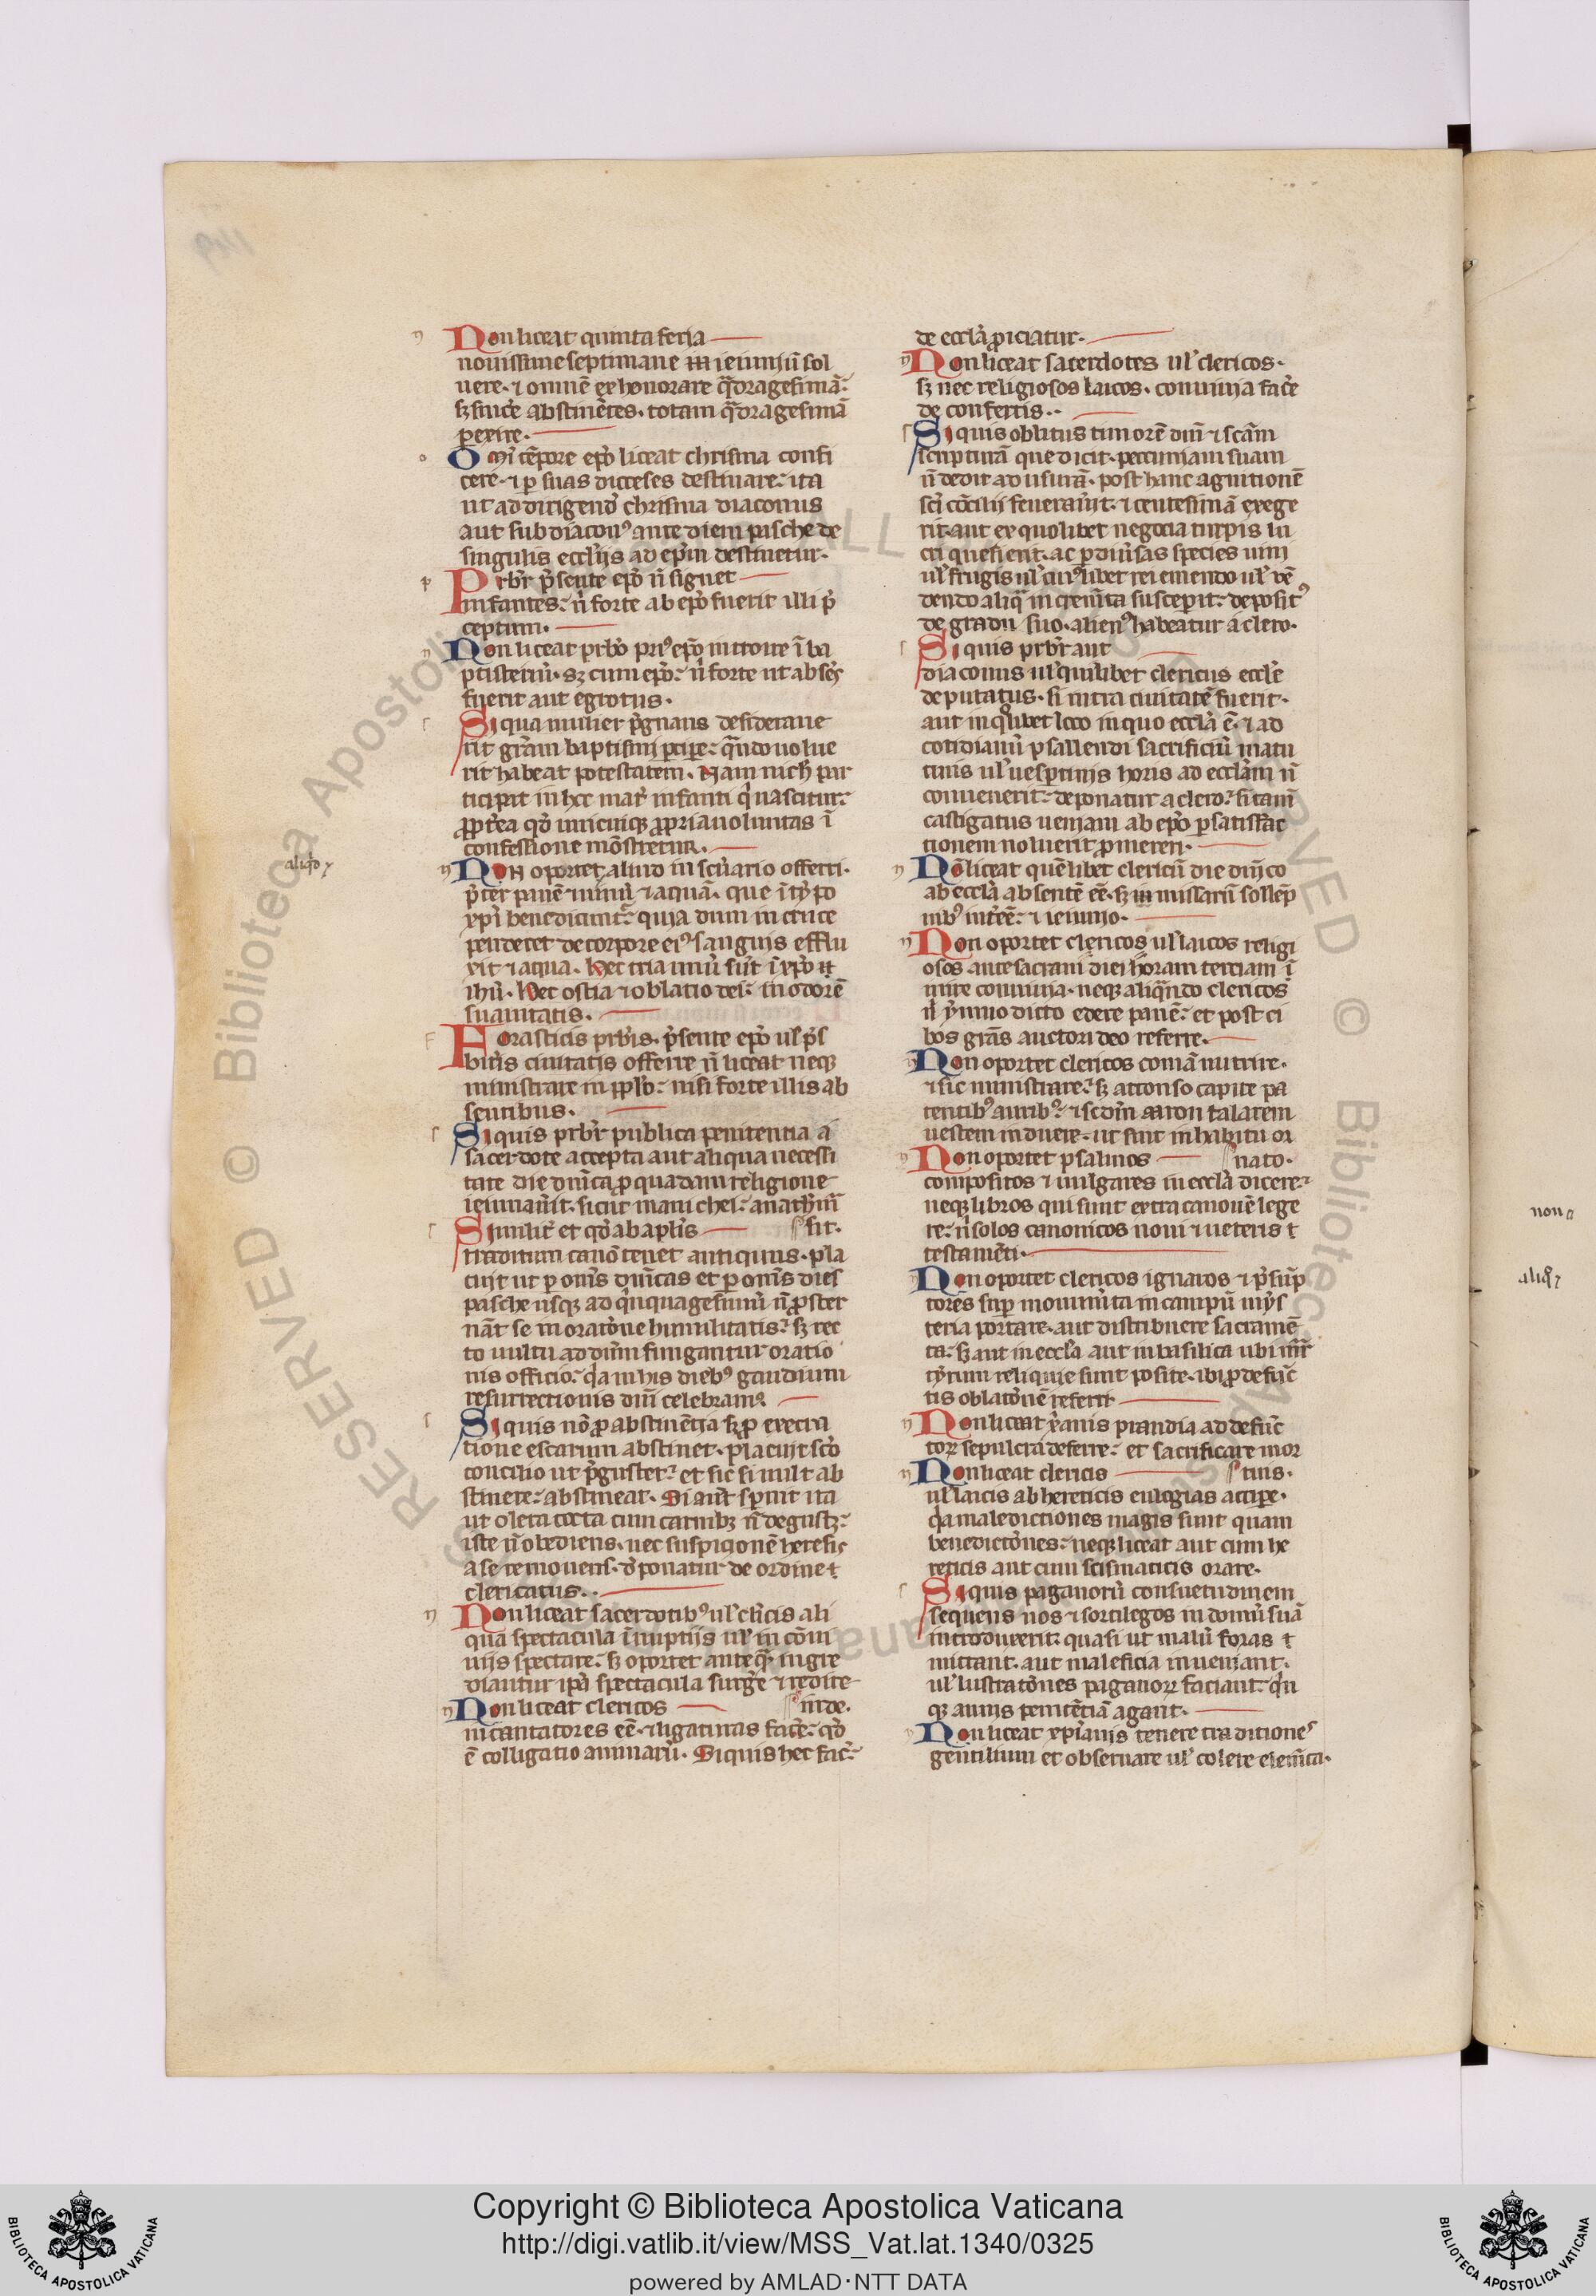 Non liceat quinta feria
nouissime septimane ieiuniū sol
uere · ⁊ omnē exhonorare qͣdragesimā ·
sꝫ sincͤe abstinētes · totam qͣdragesimā
ꝑexire ·
Omī tēpore ep̄o liceat chrisma confi
cere · ⁊ ꝑ suas dioceses destinare · ita
ut ad dirigendū chrisma diaconus
aut subdiaconꝰ ante diem pasche de
singulis eccl̄iis ad ep̄m destinetur ·
Prb̄r p̄sente ep̄o n̄ signet
infantes · n̄ forte ab ep̄o fuerit illi p̄
ceptum ·
Non liceat prb̄o priꝰ ep̄o introire ī ba
ptisteriū · sꝫ cum ep̄o · n̄ forte ut absēs
fuerit aut egrotus ·
Si qua mulier p̄gnans desideraue
rit gr̄am baptismi ꝑciꝑe · qn̄do uolue
rit habeat potestatem · Nam nich̄ par
ticipat in hec mat̄ infanti q̄ nascitur ·
ꝓpt̄ea qd̄ unicuiqꝫ ꝓpria uoluntas ī
confessione mōstretur ·
aliqd̄
Non oportet aliud in sc̄uario offerri ·
p̄ter panē ⁊ uinū ⁊ aquā · que ī tẏpo
xp̄i benedicunt̄ · quia dum in cruce
penderet de corpore eiꝰ sanguis efflu
xit ⁊ aqua · Hec tria unū sūt ī xp̄o
ihū · Hec ostia ⁊ oblatio dei · in odorē
suauitatis ·
Forasticis prb̄is · p̄sente ep̄o ul̄ p̄s
bit̄is ciuitatis offerre n̄ liceat neqꝫ
ministrare in pp̄lo · nisi forte illis ab
sentibus ·
Si quis prb̄r publica penitentia a
sacerdote accepta aut aliqua necessi
tate die dn̄ica ꝓ quadam religione
ieiunau̅it · sicut manichei · anath̄m̄
Similit̄ et qd̄ ab aplīs sit ·
traditum canō tenet antiquus · pla
cuit ut ꝑ om̄s dn̄icas et ꝑ om̄s dies
pasche usqꝫ ad q̄nquagesimū n̄ ꝓster
nāt se in oratōne humilitatis · sꝫ rec
to uultu ad dūm fungantur oratio
nis officio · q̄a in his diebꝰ gaudium
resurrectionis dn̄i celebramꝰ
Si quis nō ꝓ abstinētia sꝫ ꝓ execra
tione escarum abstinet · placuit sc̄o
concilio ut p̄gustet · et sic si uult ab
stinere · abstineat · Si aut̄ sp̄nit ita
ut olera cocta cum carnibꝫ n̄ degustꝫ ·
iste n̄ obediens · nec suspicionē heresis
a se remouens · d̄ponatur de ordine
clericatus ·
Non liceat sacerdotibꝰ ul̄ cl̄icis ali
qua spectacula ī nuptijs ul̄ in cōui
uijs spectare · sꝫ oportet anteqͣ ingre
diantur ip̄a spectacula surḡe ⁊ redire
Non liceat clericos inde ·
incantatores eē · ⁊ ligaturas fac̄e · qd̄
ē colligatio animarū · Si quis hec fac̄ ·
de eccl̄a ꝓiciatur ·
Non liceat sacerdotes ul̄ clericos ·
sꝫ nec religiosos laicos · conuiuia fac̄e
de confertis ·
Si quis oblitus timorē dn̄i ⁊ sc̄am
scripturā que dicit · peccuniam suam
n̄ dedit ad usurā · post hanc agnitionē
sc̄i cōcilij feneraūit · ⁊ centesimā exege
rit · aut ex quolibet negocia turpis lu
cri quesierit · ac ꝑ diu̅sas species uini
ul̄ frugis ul̄ cuiꝰlibet rei emendo ul̄ uē
dendo aliqͣ increm̄ta susceperit · depositꝰ
de gradu suo · alienꝰ habeatur a clero ·
Si quis prb̄r aut
diaconus ul̄ quilibet clericus eccl̄e
deputatus · si intra ciuitatē fuerit ·
aut in qͦlibet loco in quo eccl̄a ē · ⁊ ad
cotidianū psallendi sacrificiū matu
tinis ul̄ uesp̄tinis horis ad eccl̄am n̄
conuenerit · deponatur a clero · si tam̄
castigatus ueniam ab ep̄o ꝑ satisfac
tionem noluerit ꝓmereri ·
Nō liceat quēlibet clericū die dn̄ico
ab eccl̄a absentē eē · sꝫ in missarū sollēp
nibꝰ int̄eē · ⁊ ieiunio ·
Non oportet clericos ul̄ laicos religi
osos ante sacram diei horam terciam ī
nire conuiuia · neqꝫ aliqn̄do clericos
n̄ ẏmno dicto edere panē · et post ci
bos gr̄as auctori deo referre ·
Non oportet clericos comā nutrire ·
⁊ sic ministrare · sꝫ attonso capite pa
tentibꝰ auribꝰ · ⁊ scd̄m aaron talarem
uestem induere · ut sint in habitu or
Non oportet psalmos nato ·
compositos ⁊ uulgares in eccl̄a dicere ·
neqꝫ libros qui sunt extra canonē lege
re · n̄ solos canonicos noui ⁊ ueteris
testamēti ·
Non oportet clericos ignaros ⁊ p̄sūp
tores sup̄ monum̄ta in campū mẏs
teria portare · aut distribuere sacramē
ta · sꝫ aut in eccl̄a aut in basilica ubi mr̄
tẏrum reliquie sunt posite · ibi ꝓ defūc
tis oblatōnē referri
Non liceat xp̄ianis prandia ad defūc
toꝝ sepulcra deferre · et sacrificare mor
Non liceat clericis tuis ·
ul̄ laicis ab hereticis eulogias acciꝑe ·
q̄a maledictiones magis sunt quam
benedictōnes · neqꝫ liceat aut cum he
reticis aut cum scismaticis orare ·
Si quis paganorū consuetudinem
sequens nos ⁊ sortilegos in domū suā
introduxerit · quasi ut malū foras
mittant · aut maleficia inueniant ·
ul̄ lustratōnes paganoꝝ faciant · q̄n
qꝫ annis penitētiā agant ·
Non liceat xp̄ianis tenere traditiones
gentilium et obseruare ul̄ colere elem̄ta ·
non
aliqd̄
Copyright © Biblioteca Apostolica Vaticana
http://digi.vatlib.it/view/MSS_Vat.lat.1340/0325
powered by AMLAD·NTT DATA
BIBLIOTECA APOSTOLICA VATICANA
BIBLIOTECA APOSTOLICA VATICANA